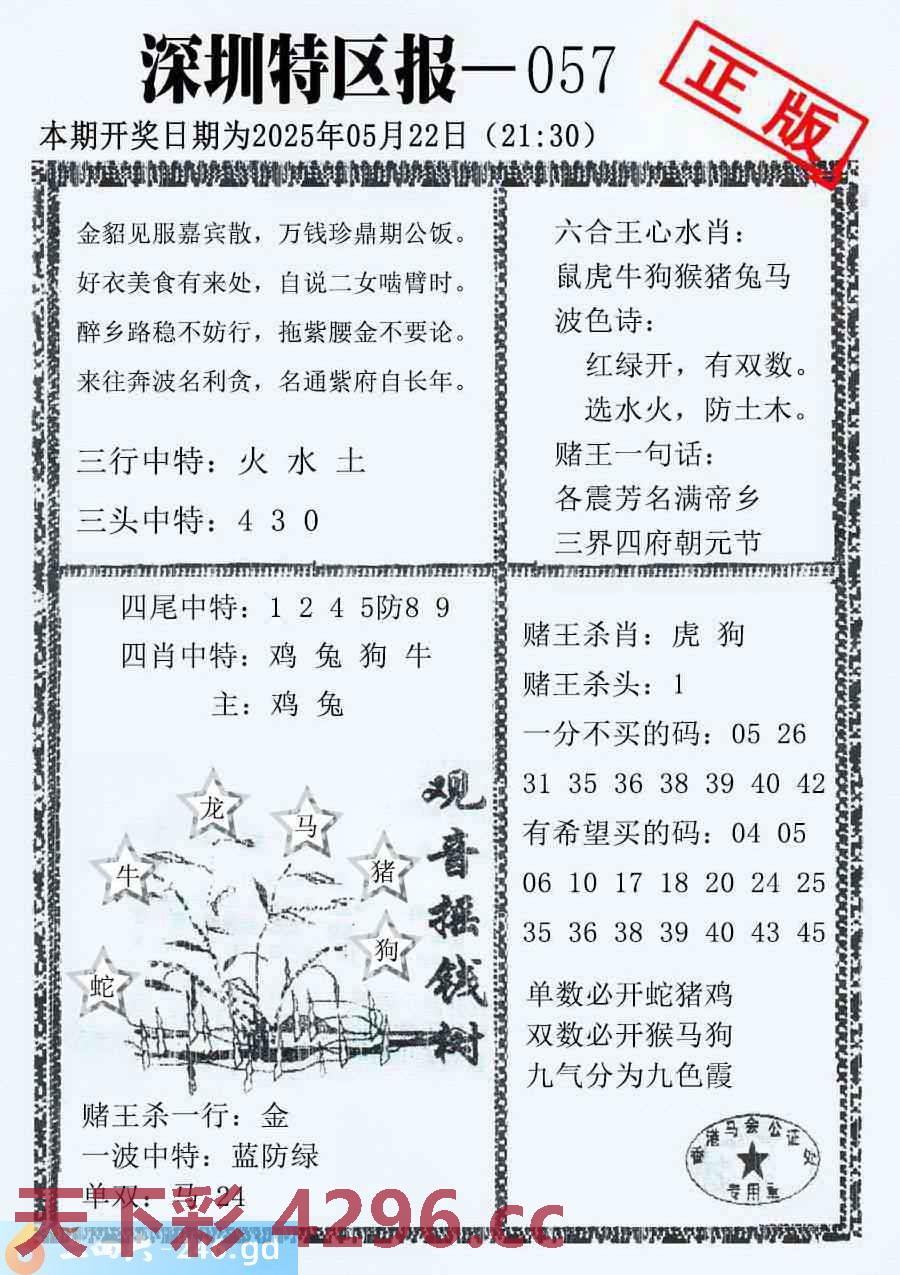 深圳特区报—057
正版
本期开奖日期为2025年05月22日（21:30）
金貂见服嘉宾散，万钱珍鼎期公饭。
好衣美食有来处，自说二女啮臂时。
醉乡路稳不妨行，拖紫腰金不要论。
来往奔波名利贪，名通紫府自长年。
三行中特：火 水 土
三头中特：4 3 0
六合王心水肖：
鼠虎牛狗猴猪兔马
波色诗：
红绿开，有双数。
选水火，防土木。
赌王一句话：
各震芳名满帝乡
三界四府朝元节
四尾中特：1 2 4 5防8 9
四肖中特：鸡 兔 狗 牛
主：鸡 兔
龙
马
牛
猪
狗
蛇
观音摇钱树
赌王杀一行：金
一波中特：蓝防绿
单双：马 24
赌王杀肖：虎 狗
赌王杀头：1
一分不买的码：05 26
31 35 36 38 39 40 42
有希望买的码：04 05
06 10 17 18 20 24 25
35 36 38 39 40 43 45
单数必开蛇猪鸡
双数必开猴马狗
九气分为九色霞
香港马会公证处
专用章
天下彩 4296.cc